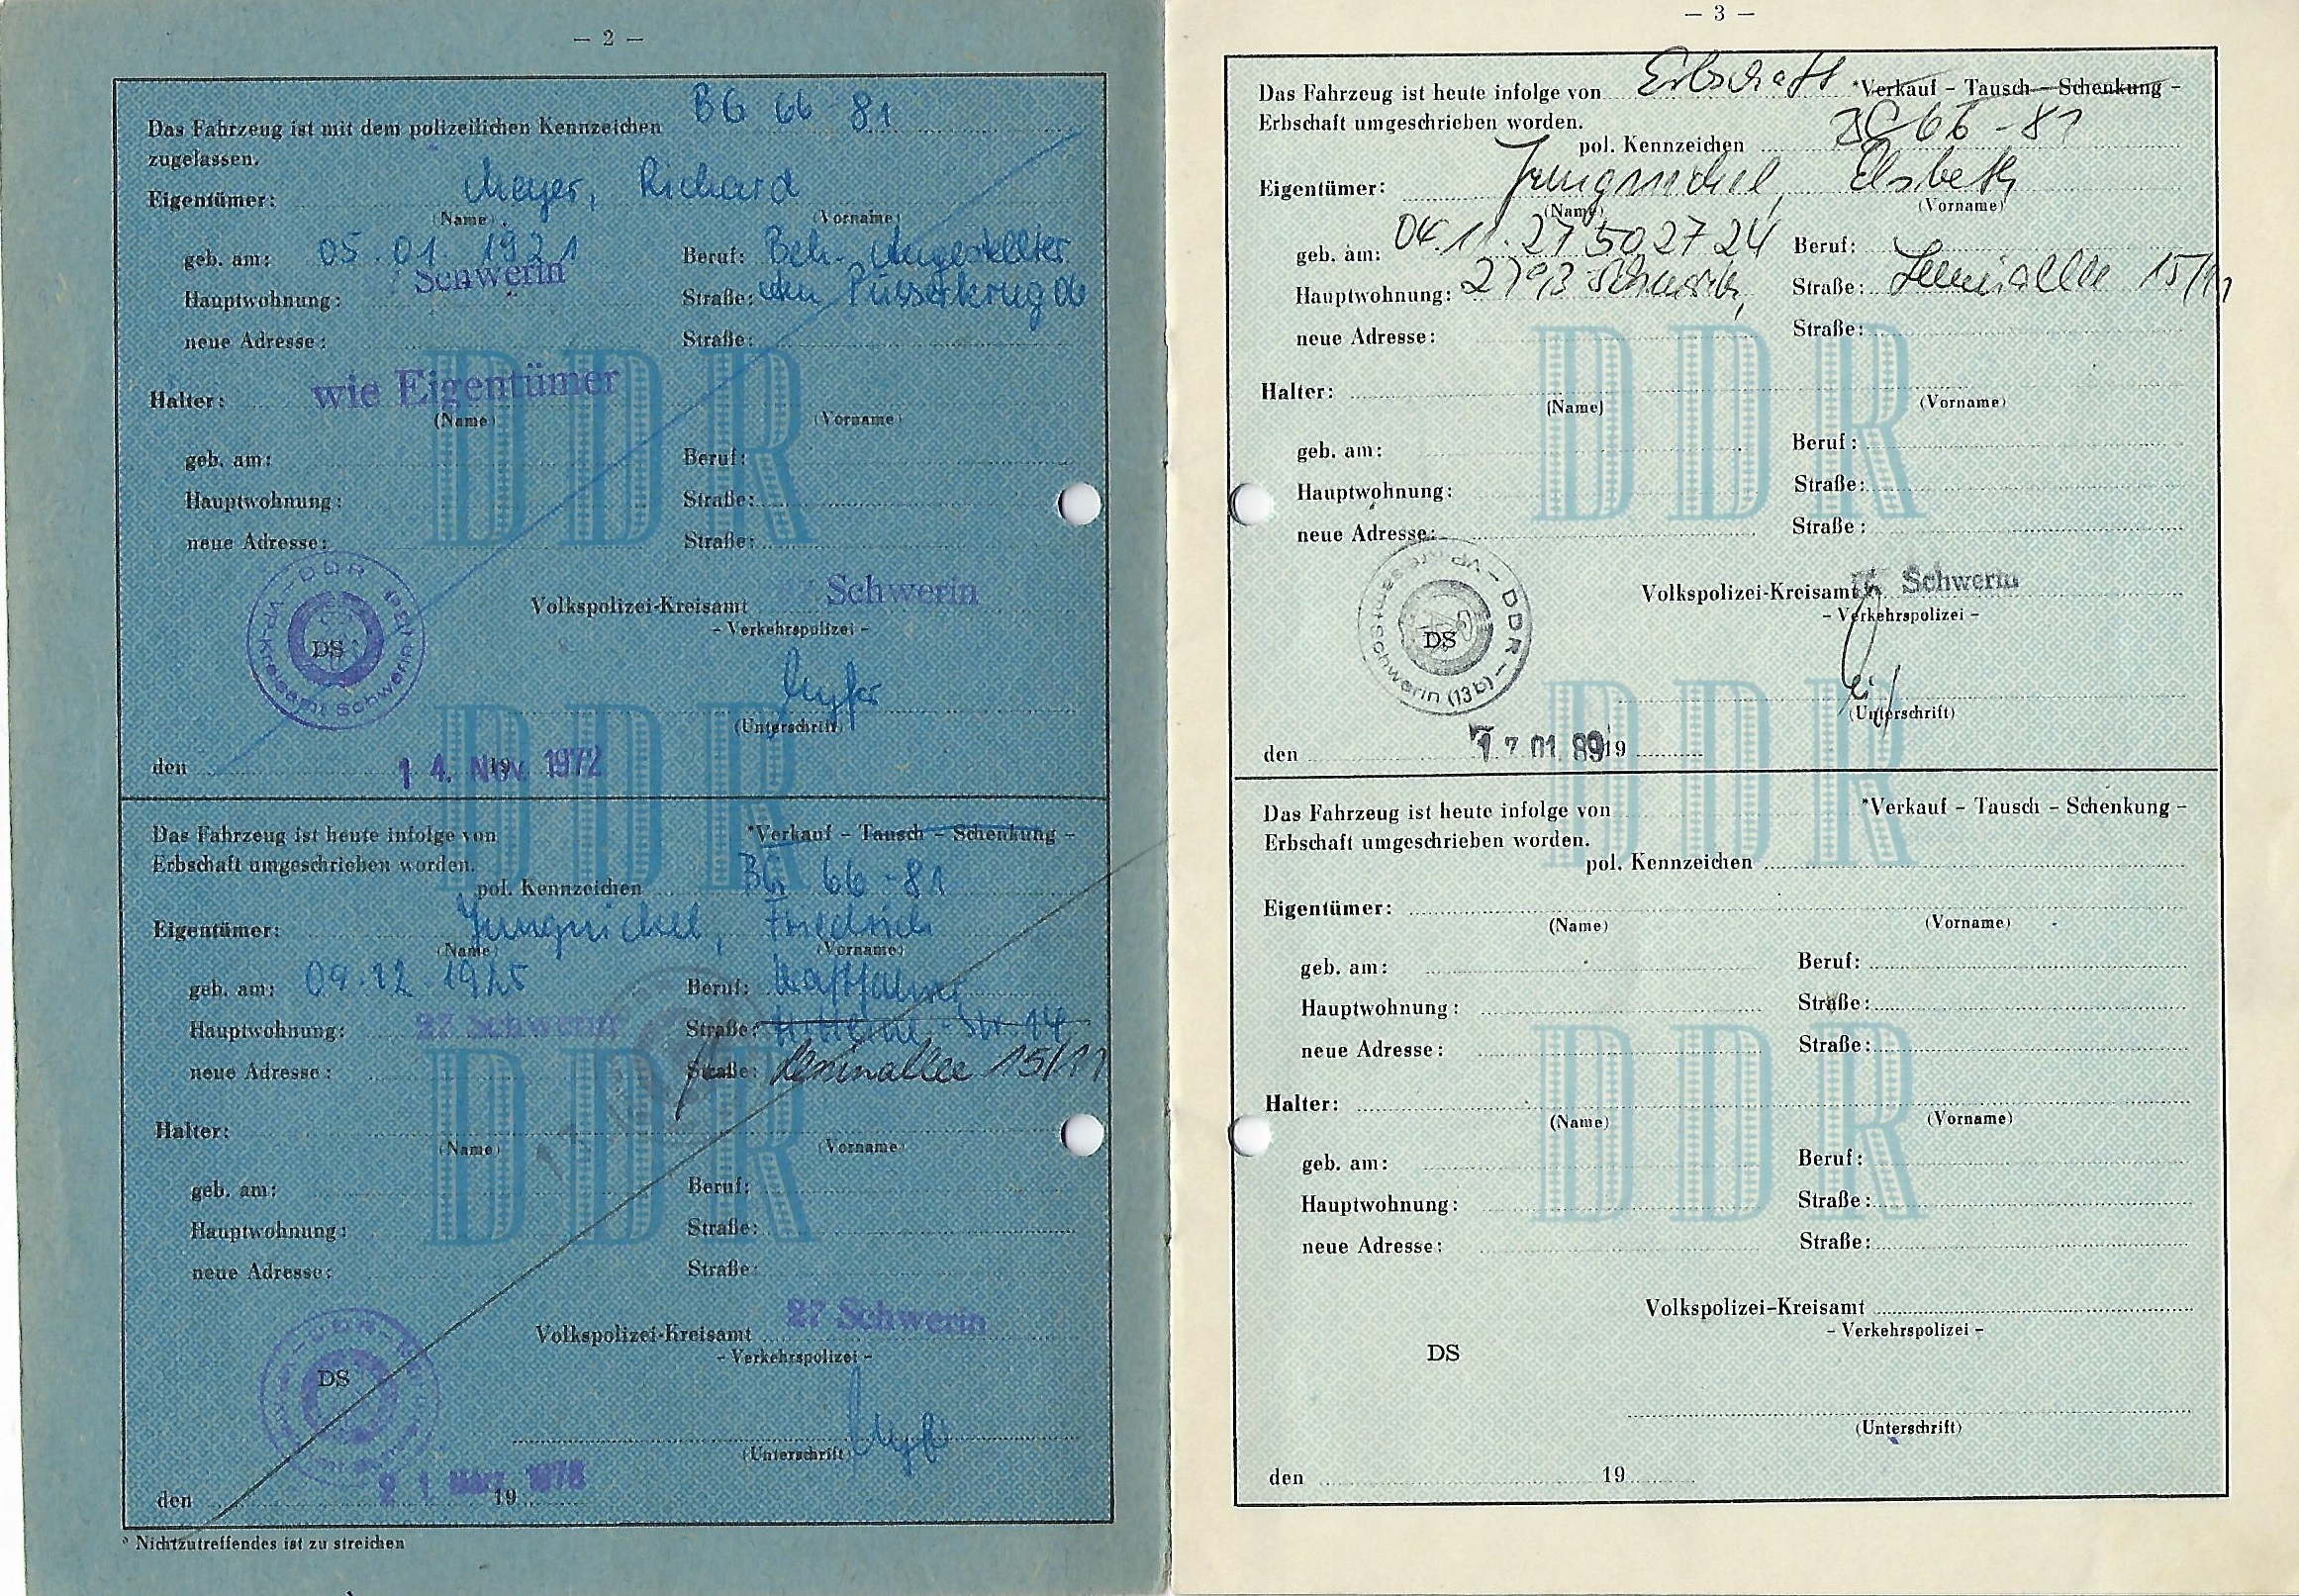 — 2 —
Das Fahrzeug ist mit dem polizeilichen Kennzeichen BG 66-81
zugelassen.
Eigentümer: Meyer, Richard
(Name) (Vorname)
geb. am: 05.01.1921 Beruf: Beh. Angestellter
Hauptwohnung: Schwerin Straße: Püsserkrug 06
neue Adresse: Straße:
Halter: wie Eigentümer
(Name) (Vorname)
geb. am: Beruf:
Hauptwohnung: Straße:
neue Adresse: Straße:
VP-Kreisamt Schwerin DDR
DS
Volkspolizei-Kreisamt Schwerin
- Verkehrspolizei -
(Unterschrift)
den 14. Nov. 1972 19
Das Fahrzeug ist heute infolge von *Verkauf - Tausch - Schenkung -
Erbschaft umgeschrieben worden.
pol. Kennzeichen BG 66-81
Eigentümer: Jungnickel, Friedrich
(Name) (Vorname)
geb. am: 09.12.1925 Beruf: Kraftfahrer
Hauptwohnung: 27 Schwerin Straße: Str. 14
neue Adresse: Straße: Leninallee 15/11
Halter:
(Name) (Vorname)
geb. am: Beruf:
Hauptwohnung: Straße:
neue Adresse: Straße:
DS
Volkspolizei-Kreisamt 27 Schwerin
- Verkehrspolizei -
(Unterschrift)
den 19
* Nichtzutreffendes ist zu streichen
— 3 —
Das Fahrzeug ist heute infolge von Erbschaft *Verkauf - Tausch - Schenkung -
Erbschaft umgeschrieben worden.
pol. Kennzeichen BG 66-81
Eigentümer: Jungnickel, Elsbeth
(Name) (Vorname)
geb. am: 04.11.27 502724 Beruf:
Hauptwohnung: 2793 Schwerin, Straße: Leninallee 15/11
neue Adresse: Straße:
Halter:
(Name) (Vorname)
geb. am: Beruf:
Hauptwohnung: Straße:
neue Adresse: Straße:
VP - DDR - Schwerin (13b)
DS
Volkspolizei-Kreisamt Schwerin
- Verkehrspolizei -
(Unterschrift)
den 01 89 19
Das Fahrzeug ist heute infolge von *Verkauf - Tausch - Schenkung -
Erbschaft umgeschrieben worden.
pol. Kennzeichen
Eigentümer:
(Name) (Vorname)
geb. am: Beruf:
Hauptwohnung: Straße:
neue Adresse: Straße:
Halter:
(Name) (Vorname)
geb. am: Beruf:
Hauptwohnung: Straße:
neue Adresse: Straße:
Volkspolizei-Kreisamt
- Verkehrspolizei -
DS
(Unterschrift)
den 19
DDR
DDR
DDR
DDR
DDR
DDR